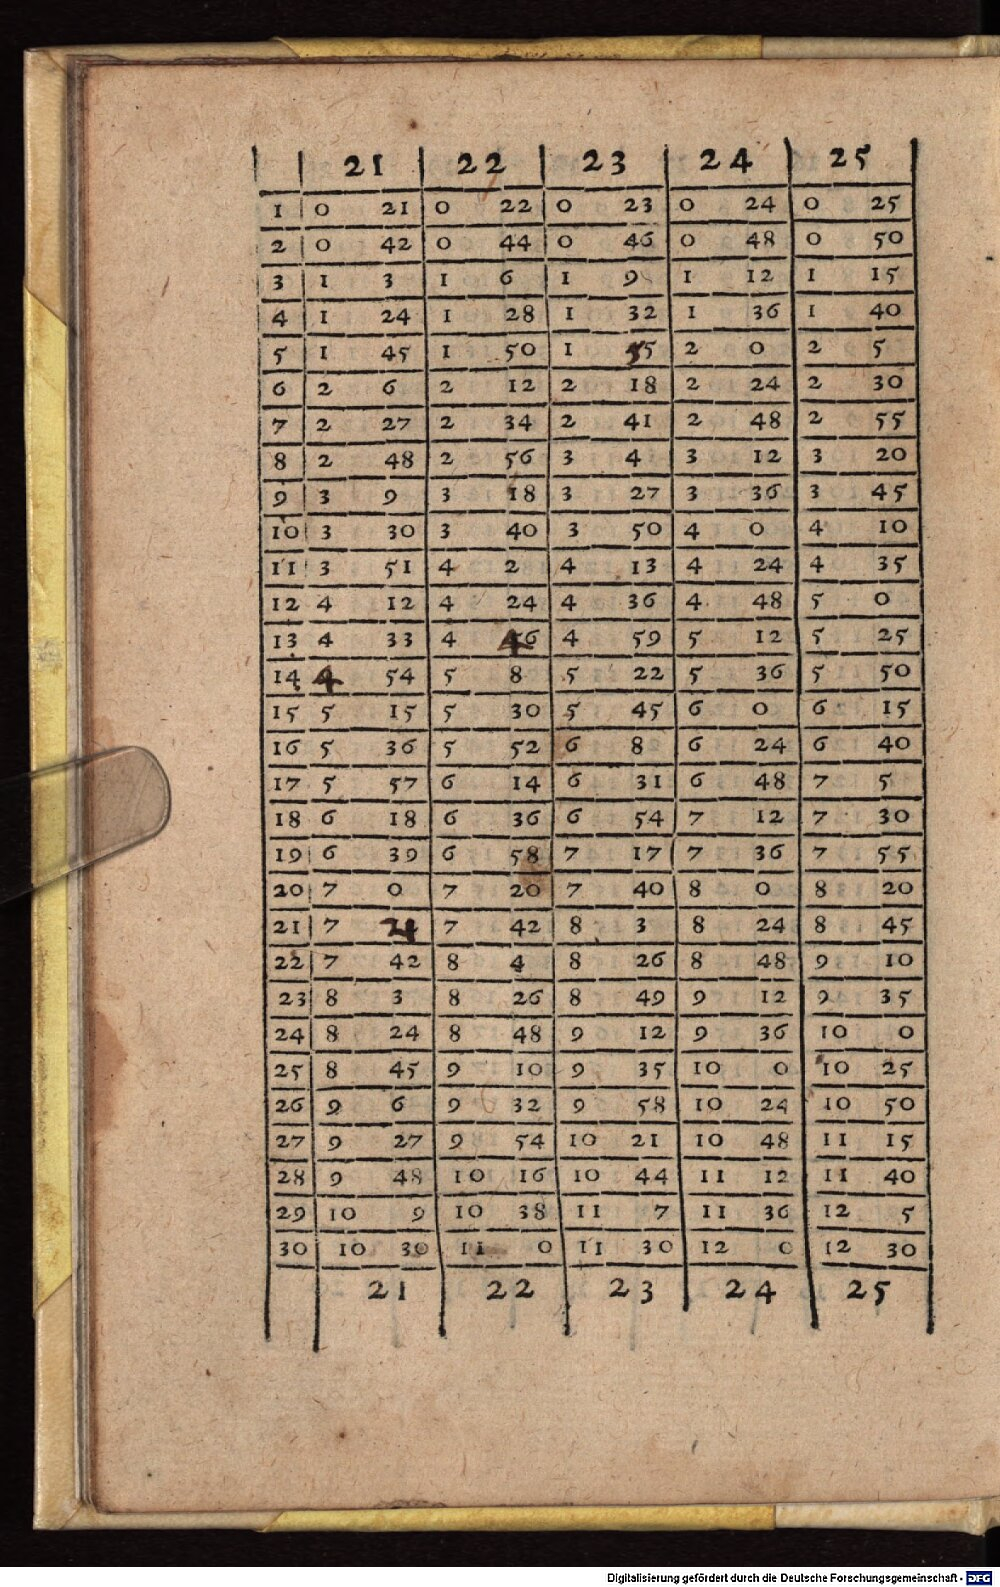 21 22 23 24 25
1 0 21 0 22 0 23 0 24 0 25
2 0 42 0 44 0 46 0 48 0 50
3 1 3 1 6 1 9 1 12 1 15
4 1 24 1 28 1 32 1 36 1 40
5 1 45 1 50 1 55 2 0 2 5
6 2 6 2 12 2 18 2 24 2 30
7 2 27 2 34 2 41 2 48 2 55
8 2 48 2 56 3 4 3 12 3 20
9 3 9 3 18 3 27 3 36 3 45
10 3 30 3 40 3 50 4 0 4 10
11 3 51 4 2 4 13 4 24 4 35
12 4 12 4 24 4 36 4 48 5 0
13 4 33 4 46 4 59 5 12 5 25
14 4 54 5 8 5 22 5 36 5 50
15 5 15 5 30 5 45 6 0 6 15
16 5 36 5 52 6 8 6 24 6 40
17 5 57 6 14 6 31 6 48 7 5
18 6 18 6 36 6 54 7 12 7 30
19 6 39 6 58 7 17 7 36 7 55
20 7 0 7 20 7 40 8 0 8 20
21 7 21 7 42 8 3 8 24 8 45
22 7 42 8 4 8 26 8 48 9 10
23 8 3 8 26 8 49 9 12 9 35
24 8 24 8 48 9 12 9 36 10 0
25 8 45 9 10 9 35 10 0 10 25
26 9 6 9 32 9 58 10 24 10 50
27 9 27 9 54 10 21 10 48 11 15
28 9 48 10 16 10 44 11 12 11 40
29 10 9 10 38 11 7 11 36 12 5
30 10 30 11 0 11 30 12 0 12 30
21 22 23 24 25
Digitalisierung gefördert durch die Deutsche Forschungsgemeinschaft - DFG